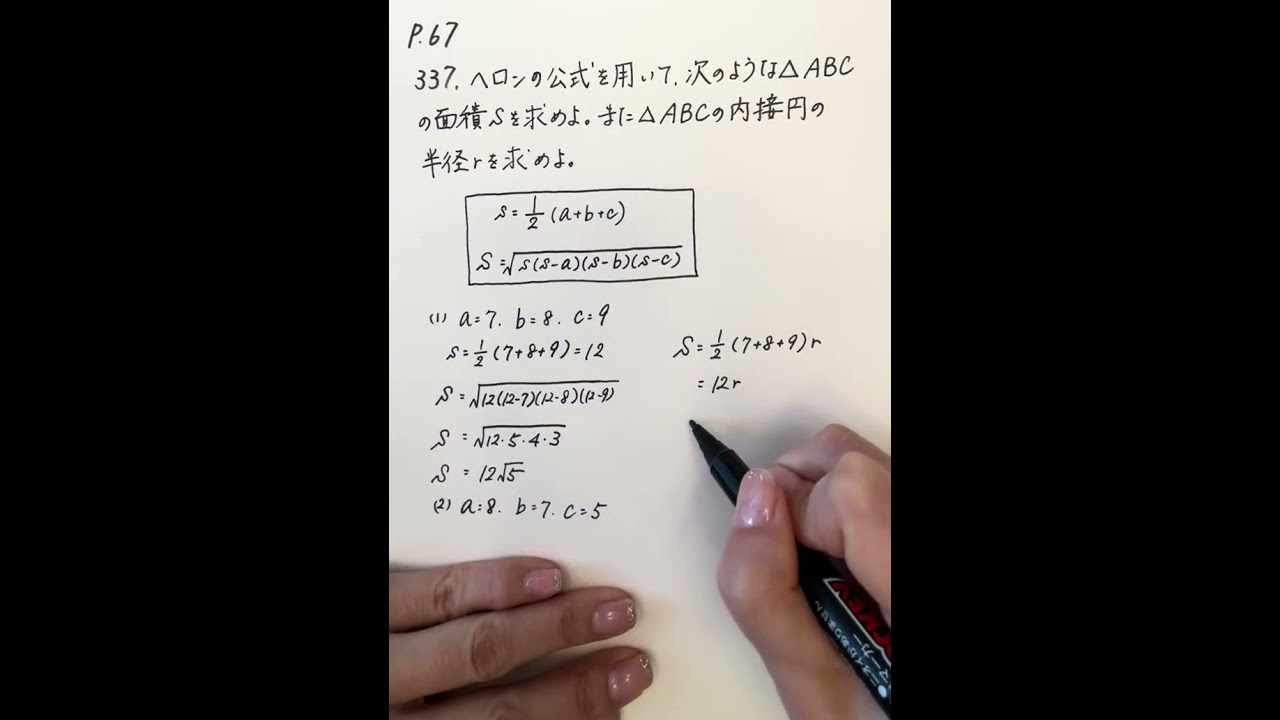 P.67
337. ヘロンの公式を用いて、次のような△ABC
の面積Sを求めよ。また△ABCの内接円の
半径rを求めよ。
s=1/2(a+b+c)
S=√s(s-a)(s-b)(s-c)
(1) a=7. b=8. c=9
s=1/2(7+8+9)=12
S=√12(12-7)(12-8)(12-9)
S=√12・5・4・3
S=12√5
(2) a=8. b=7. c=5
S=1/2(7+8+9)r
=12r
ニオイがありません
マーカー